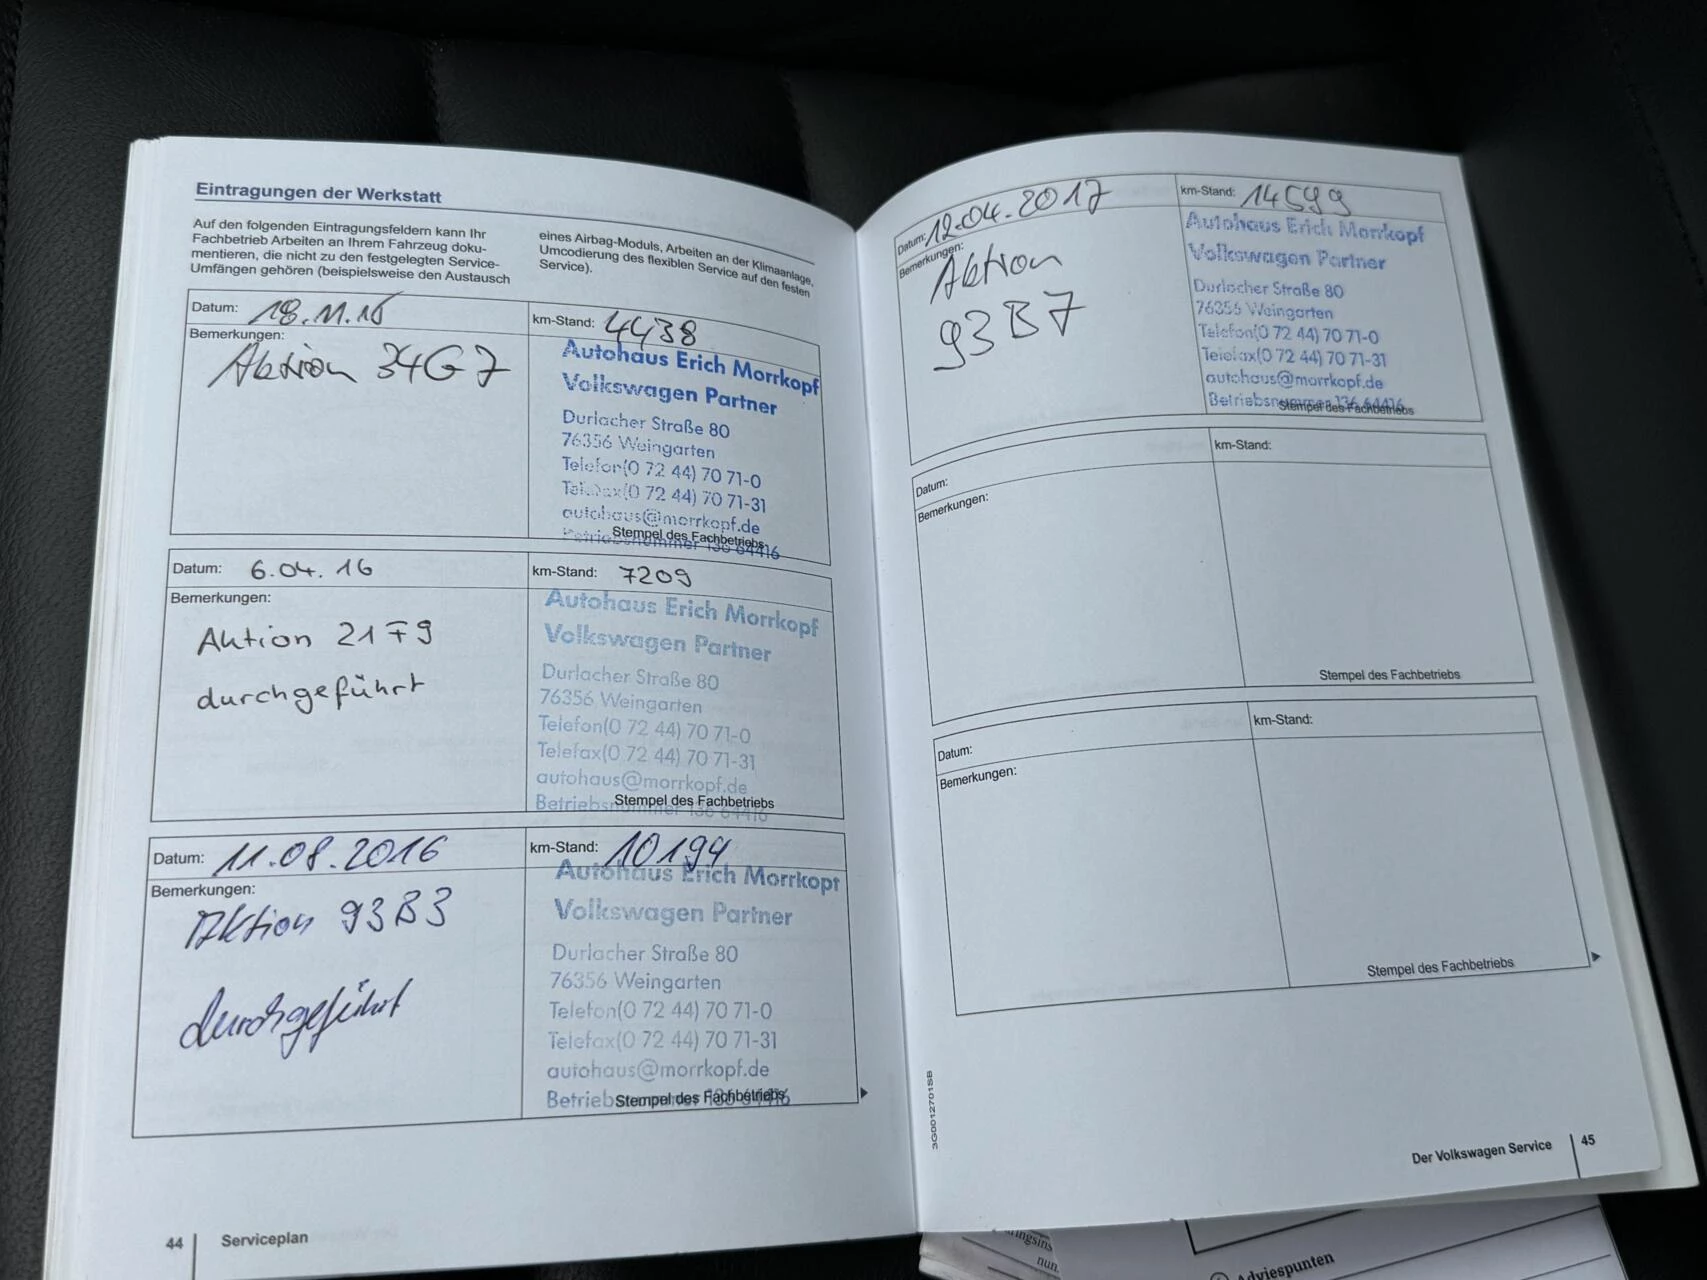 Eintragungen der Werkstatt
Auf den folgenden Eintragungsfeldern kann Ihr
Fachbetrieb Arbeiten an Ihrem Fahrzeug doku-
mentieren, die nicht zu den festgelegten Service-
Umfängen gehören (beispielsweise den Austausch
eines Airbag-Moduls, Arbeiten an der Klimaanlage,
Umcodierung des flexiblen Service auf den festen
Service).
Datum: 18.11.15
km-Stand: 4438
Bemerkungen:
Aktion 34G7
Autohaus Erich Morrkopf
Volkswagen Partner
Durlacher Straße 80
76356 Weingarten
Telefon(0 72 44) 70 71-0
Telefax(0 72 44) 70 71-31
autohaus@morrkopf.de
Betriebsnummer 136 64416
Stempel des Fachbetriebs
Datum: 6.04.16
km-Stand: 7209
Bemerkungen:
Aktion 21F9
durchgeführt
Autohaus Erich Morrkopf
Volkswagen Partner
Durlacher Straße 80
76356 Weingarten
Telefon(0 72 44) 70 71-0
Telefax(0 72 44) 70 71-31
autohaus@morrkopf.de
Betriebsnummer 136 64416
Stempel des Fachbetriebs
Datum: 11.08.2016
km-Stand: 10194
Bemerkungen:
Aktion 93B3
durchgeführt
Autohaus Erich Morrkopf
Volkswagen Partner
Durlacher Straße 80
76356 Weingarten
Telefon(0 72 44) 70 71-0
Telefax(0 72 44) 70 71-31
autohaus@morrkopf.de
Betriebsnummer 136 64416
Stempel des Fachbetriebs
44
Serviceplan
Datum: 12.04.2017
km-Stand: 14599
Bemerkungen:
Aktion
93B7
Autohaus Erich Morrkopf
Volkswagen Partner
Durlacher Straße 80
76356 Weingarten
Telefon(0 72 44) 70 71-0
Telefax(0 72 44) 70 71-31
autohaus@morrkopf.de
Betriebsnummer 136 64416
Stempel des Fachbetriebs
Datum:
km-Stand:
Bemerkungen:
Stempel des Fachbetriebs
Datum:
km-Stand:
Bemerkungen:
Stempel des Fachbetriebs
3G0012701SB
Der Volkswagen Service
45
Adviespunten